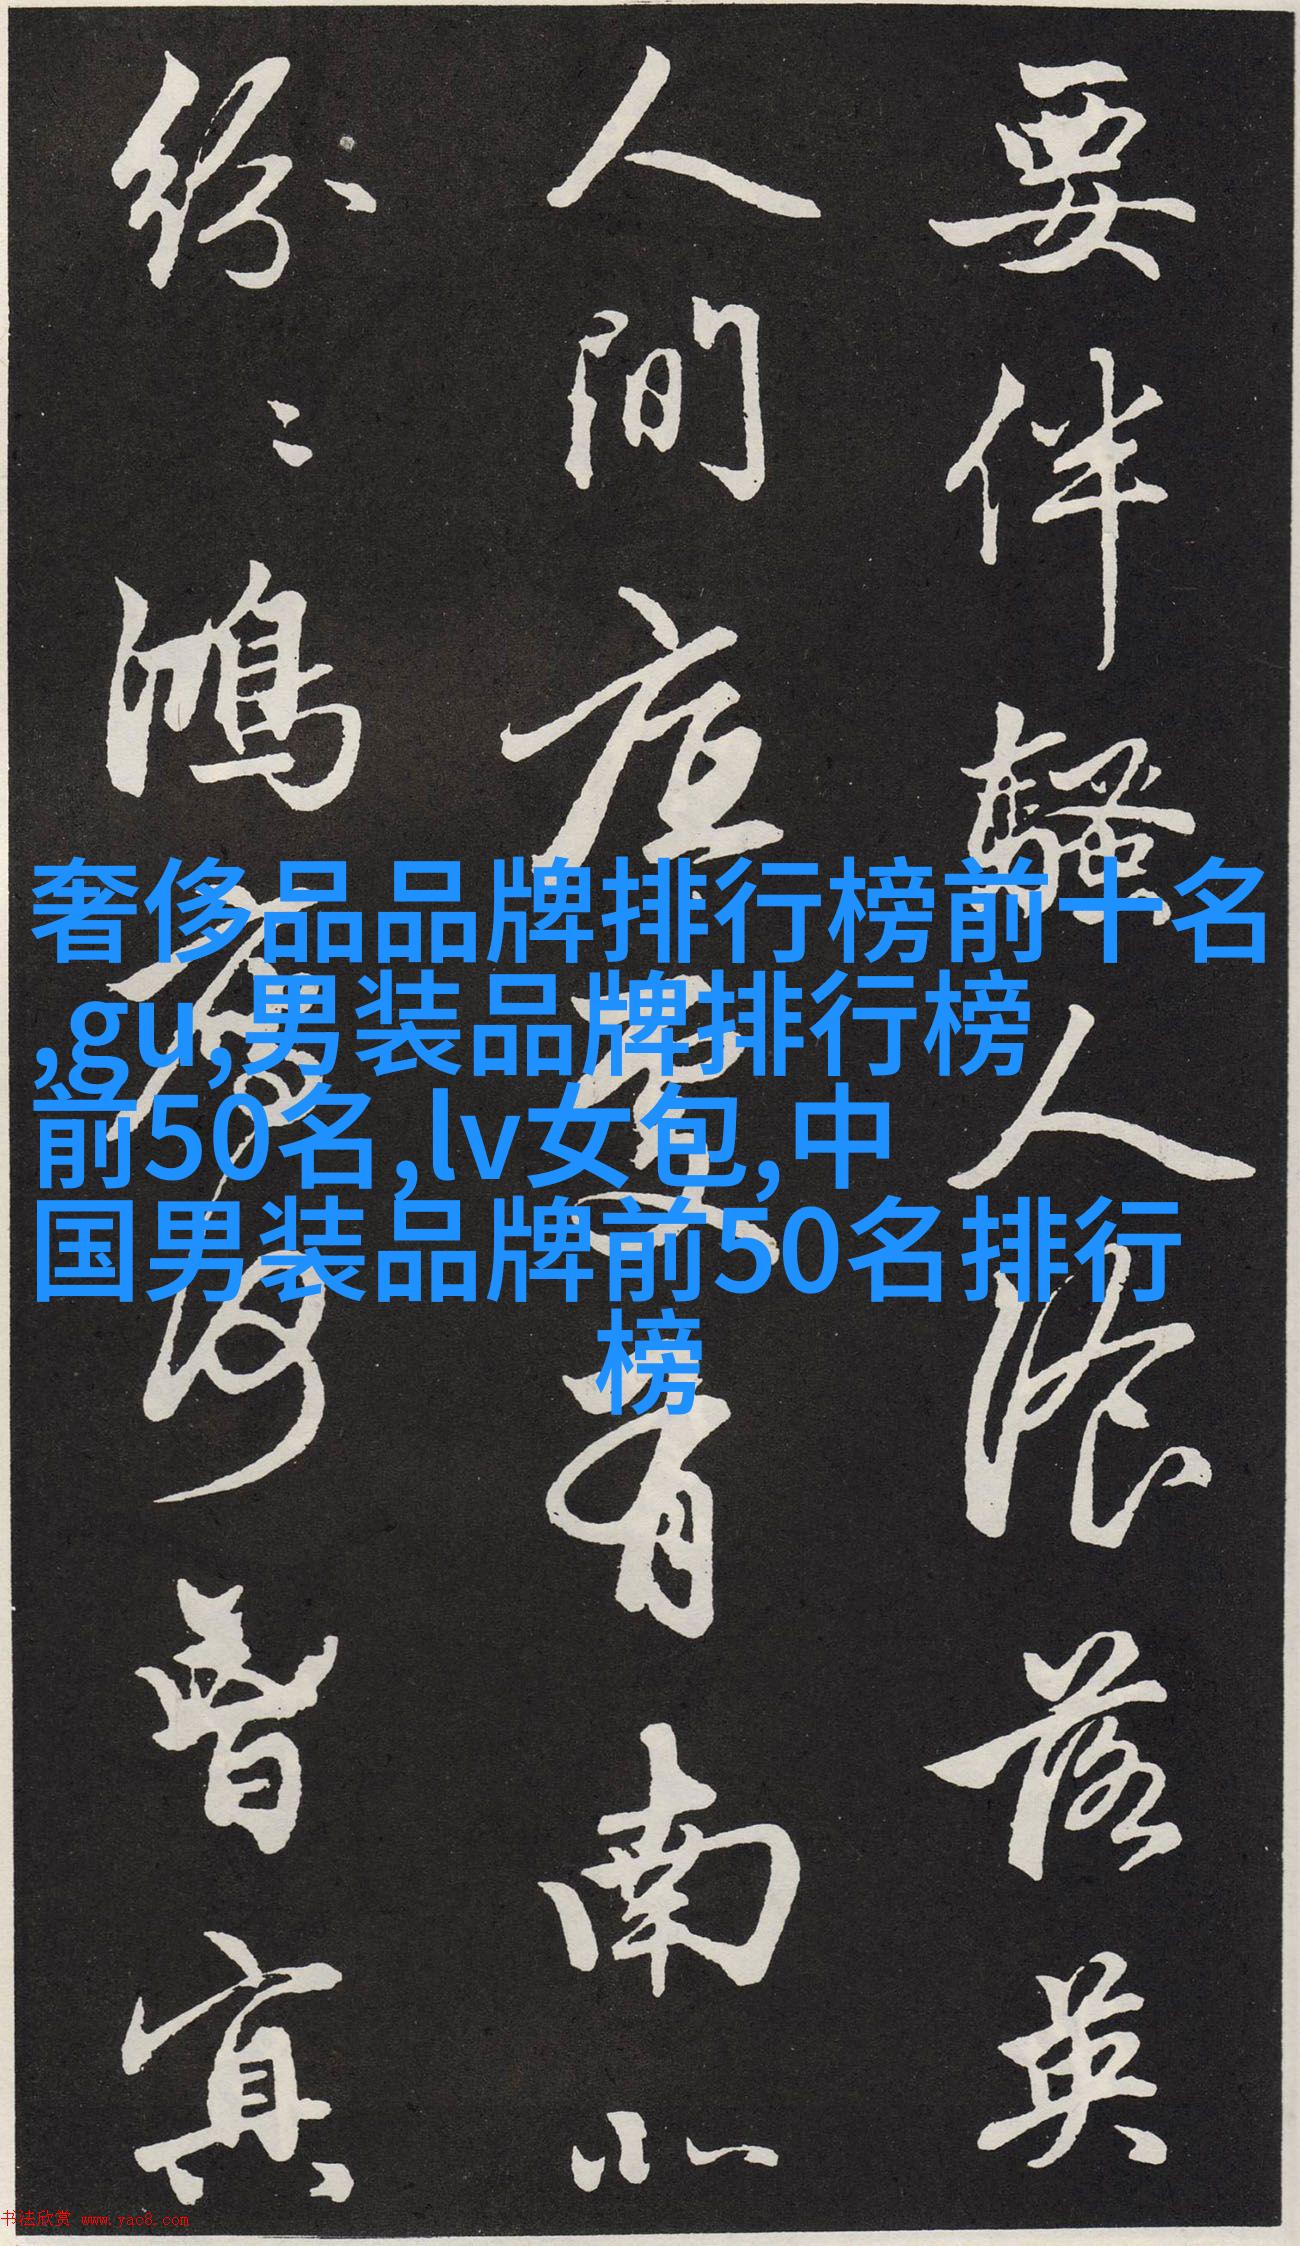 要伴騷人湌落英
人間底處有南北
紛〻鴻鴈何曾冥
奢侈品品牌排行榜前十名
,gu,男装品牌排行榜
前50名,lv女包,中
国男装品牌前50名排行
榜
书法欣赏 www.yac8.com